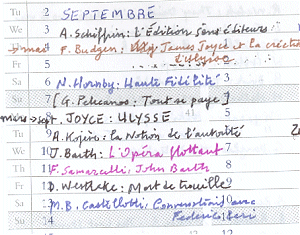 Tu 2 SEPTEMBRE
We 3 A. Schiffrin: L'Édition sans éditeurs
F. Budgen: James Joyce et la création
Fr 5 d'Ulysse
Sa 6 N. Hornby: Haute Fidélité
Su 7 [G. Pelicanos: Tout se paye]
mars → sept. JOYCE: ULYSSE 41
Tu 9 A. Kojève: La Notion de l'autorité
We 10 J. Barth: L'Opéra flottant 8
Th 11 F. Samarcelli: John Barth
Fr 12 D. Westlake: Mort de trouille
Sa 13 M.B. Castellotti: Conversations avec
Su 14 Federico